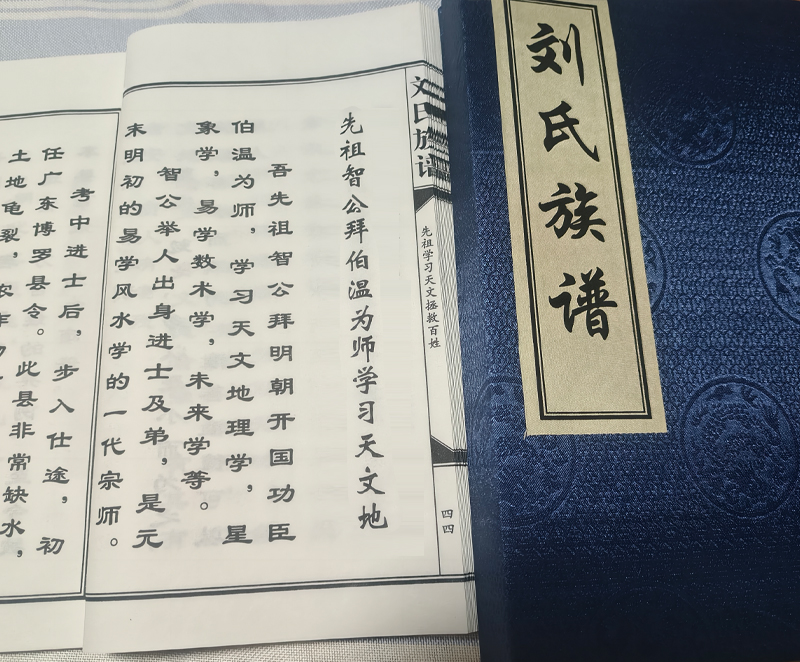 刘氏族谱
刘氏族谱
先祖学习天文拯救百姓
四四
先祖智公拜伯温为师学习天文地
吾先祖智公拜明朝开国功臣
伯温为师，学习天文地理学，星
象学，易学数术学，未来学等。
智公举人出身进士及弟，是元
末明初的易学风水学的一代宗师。
考中进士后，步入仕途，初
任广东博罗县令。此县非常缺水，
土地龟裂，农作